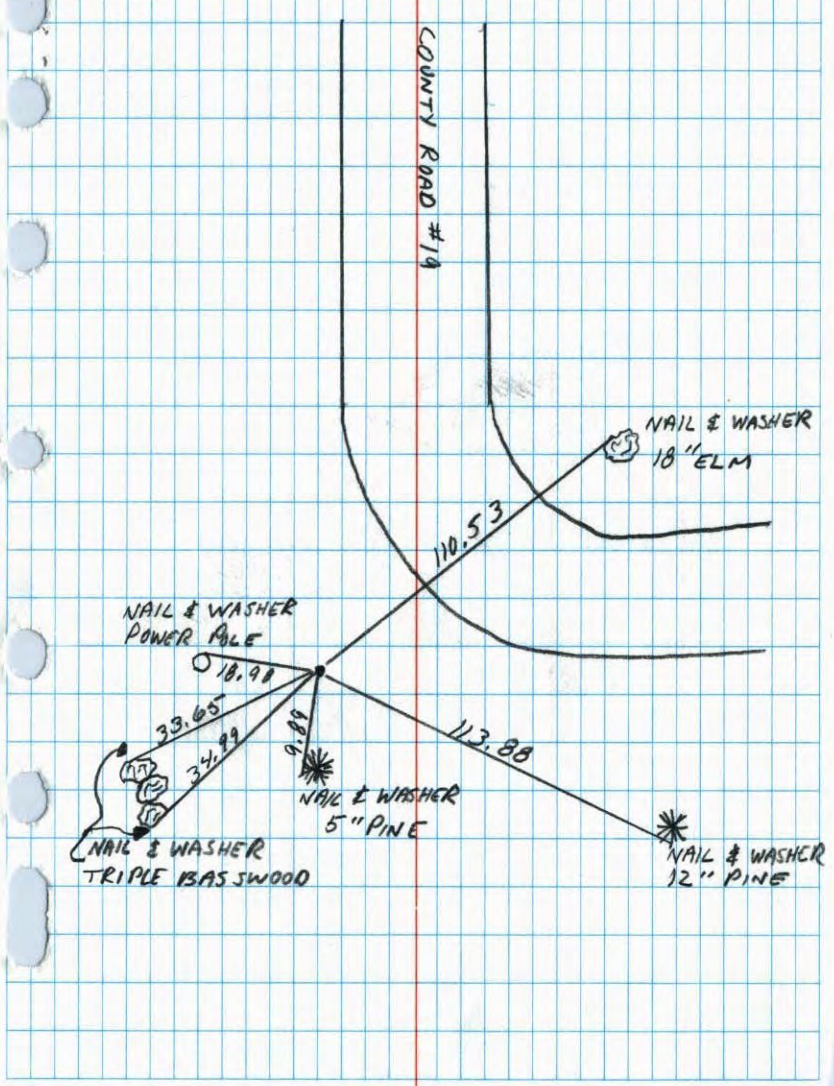 COUNTY ROAD #19
NAIL & WASHER
18" ELM
110.53
NAIL & WASHER
POWER POLE
18.98
33.65
34.99
9.89
113.88
NAIL & WASHER
5" PINE
NAIL & WASHER
TRIPLE BASSWOOD
NAIL & WASHER
12" PINE